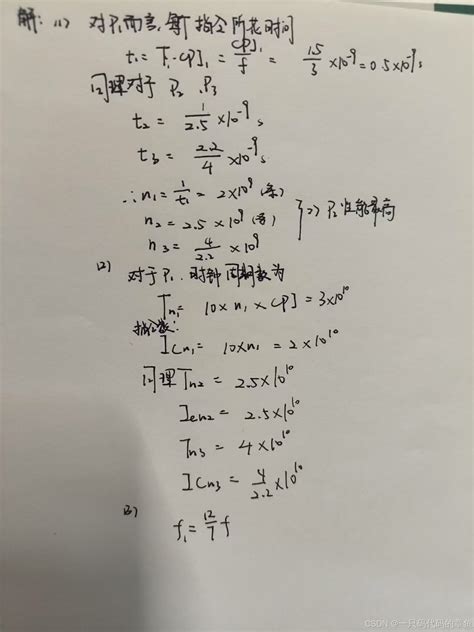 解: (1) 对P₁而言,每丁指令所花时间
t₁ = T₁·CPI₁ = CPI₁/f = 15/3 ×10⁻⁹ = 0.5×10⁻⁹s
同理对于 P₂、P₃
t₂ = 1/2.5 ×10⁻⁹s
t₃ = 2.2/4 ×10⁻⁹s
∴n₁ = 1/t₁ = 2×10⁹(条)
n₂ = 2.5×10⁹(条) } => P₂性能最高
n₃ = 4/2.2 ×10⁹
(2) 对于P₁ 时钟周期数为
Tn₁ = 10×n₁×CPI = 3×10¹⁰
指令数:
ICn₁ = 10×n₁ = 2×10¹⁰
同理Tn₂ = 2.5×10¹⁰
ICn₂ = 2.5×10¹⁰
Tn₃ = 4×10¹⁰
ICn₃ = 4/2.2 ×10¹⁰
(3)
f₁ = 12/7 f
CSDN @一只码代码的章鱼